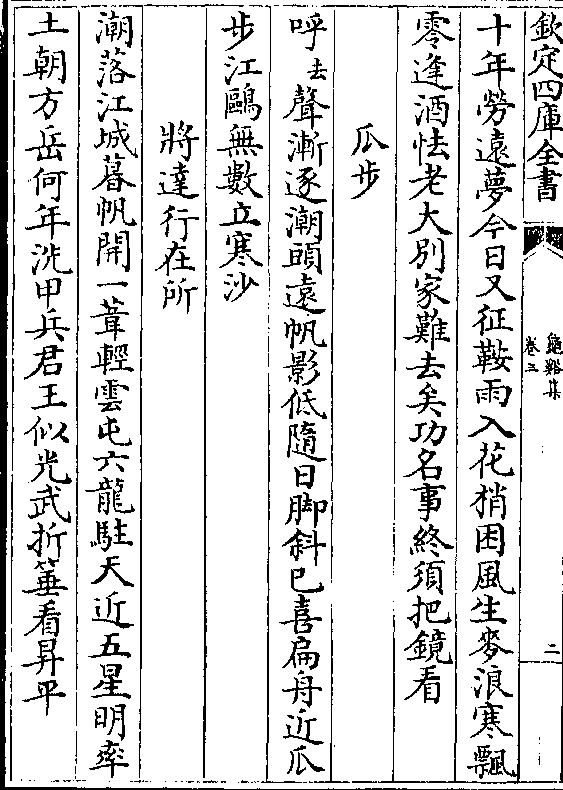 欽定四庫全書
龜谿集
卷三
二
十年勞遠夢今日又征鞍雨入花梢困風生麥浪寒飄
零逢酒怯老大別家難去矣功名事終須把鏡看
瓜步
呼去聲漸逐潮頭遠帆影低隨日脚斜已喜扁舟近瓜
步江鷗無數立寒沙
將達行在所
潮落江城暮帆開一葦輕雲屯六龍駐天近五星明率
土朝方岳何年洗甲兵君王似光武折箠看昇平